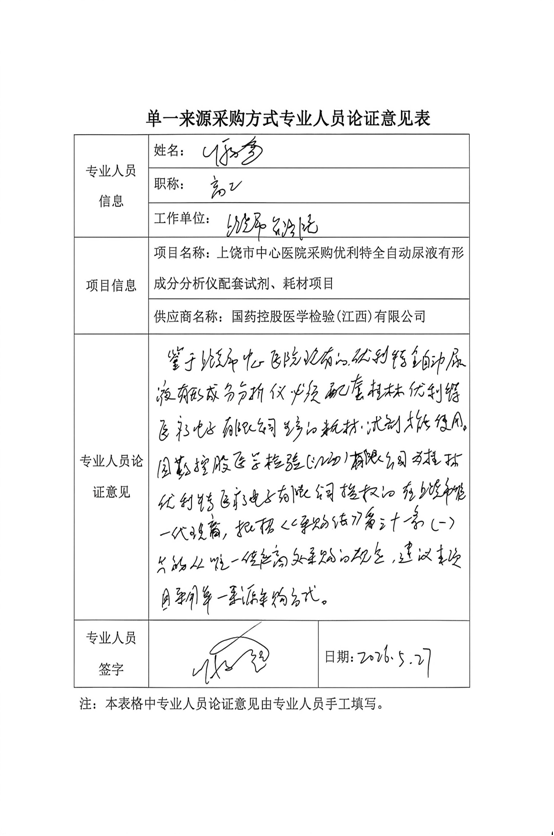 单一来源采购方式专业人员论证意见表
专业人员
信息
姓名：
职称： 高工
工作单位：
项目信息
项目名称：上饶市中心医院采购优利特全自动尿液有形
成分分析仪配套试剂、耗材项目
供应商名称：国药控股医学检验(江西)有限公司
专业人员论
证意见
鉴于上饶市中心医院现有的优利特全自动尿
液有形成分分析仪必须配套桂林优利特
医疗电子有限公司生产的耗材、试剂才能使用。
国药控股医学检验(江西)有限公司为桂林
优利特医疗电子有限公司授权的在上饶市唯
一代理商，根据《采购法》第三十一条(一)
只能从唯一供应商处采购的规定，建议本项
目采用单一来源采购方式。
专业人员
签字
日期：2026.5.27
注：本表格中专业人员论证意见由专业人员手工填写。